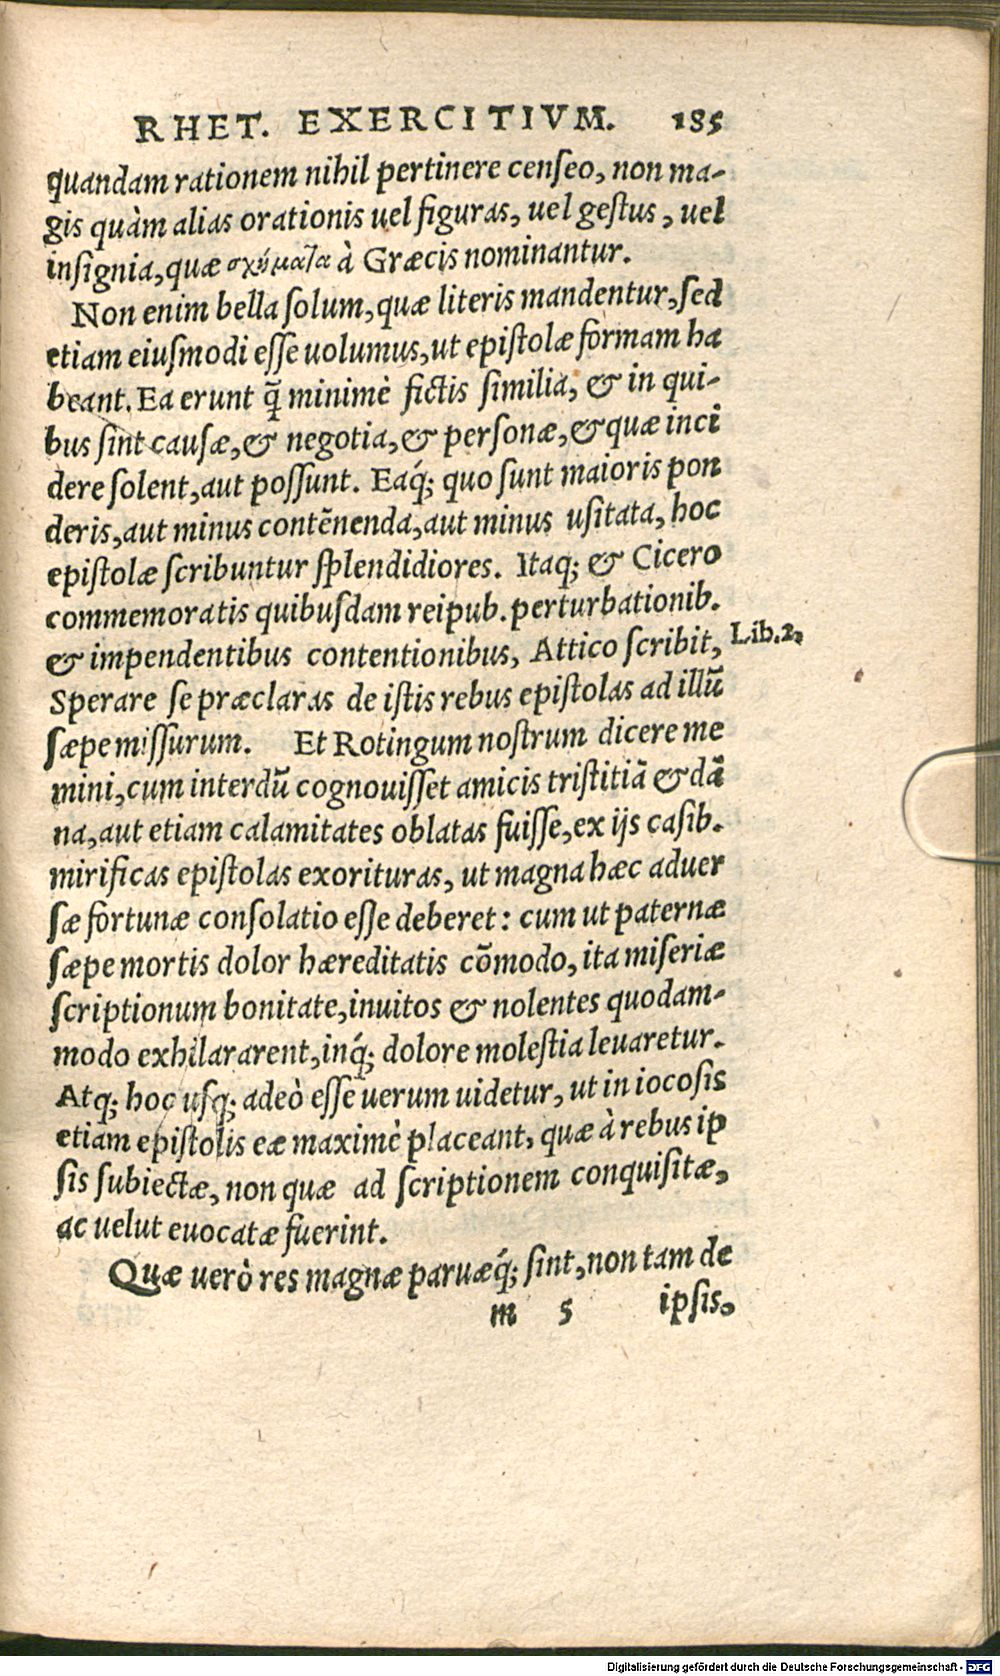 RHET. EXERCITIVM. 185
quandam rationem nihil pertinere censeo, non ma-
gis quàm alias orationis uel figuras, uel gestus, uel
insignia, quæ σχήματα à Græcis nominantur.
Non enim bella solum, quæ literis mandentur, sed
etiam eiusmodi esse uolumus, ut epistolæ formam ha
beant. Ea erunt q̃ minimè fictis similia, & in qui-
bus sint causæ, & negotia, & personæ, & quæ inci
dere solent, aut possunt. Eaq́; quo sunt maioris pon
deris, aut minus contēnenda, aut minus usitata, hoc
epistolæ scribuntur splendidiores. Itaq; & Cicero
commemoratis quibusdam reipub. perturbationib.
& impendentibus contentionibus, Attico scribit, Lib. 2,
Sperare se præclaras de istis rebus epistolas ad illũ
sæpe missurum. Et Rotingum nostrum dicere me
mini, cum interdũ cognouisset amicis tristitiã & dã
na, aut etiam calamitates oblatas fuisse, ex ijs casib.
mirificas epistolas exorituras, ut magna hæc aduer
sæ fortunæ consolatio esse deberet: cum ut paternæ
sæpe mortis dolor hæreditatis cõmodo, ita miseriæ
scriptionum bonitate, inuitos & nolentes quodam-
modo exhilararent, inq́; dolore molestia leuaretur.
Atq; hoc usq; adeò esse uerum uidetur, ut in iocosis
etiam epistolis eæ maximè placeant, quæ à rebus ip
sis subiectæ, non quæ ad scriptionem conquisitæ,
ac uelut euocatæ fuerint.
Quæ uerò res magnæ paruæq́; sint, non tam de
m 5 ipsis,
Digitalisierung gefördert durch die Deutsche Forschungsgemeinschaft - DFG